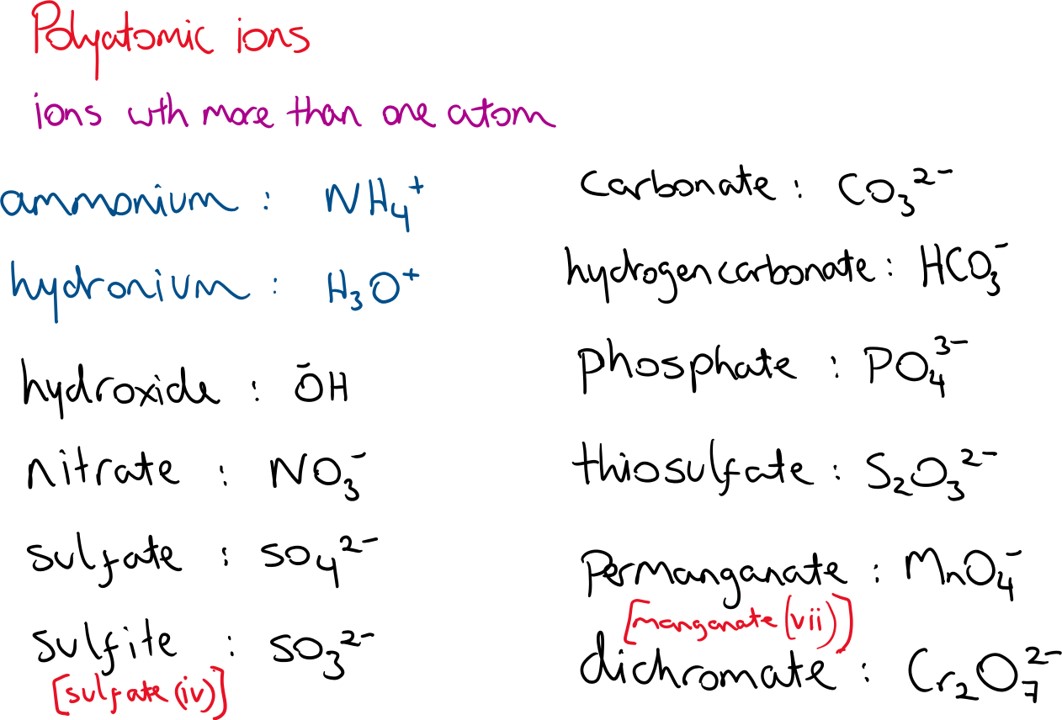 Polyatomic ions
ions wth more than one atom
ammonium : NH₄⁺
hydronium : H₃O⁺
hydroxide : ⁻OH
nitrate : NO₃⁻
sulfate : SO₄²⁻
sulfite : SO₃²⁻
[sulfate (iv)]
carbonate : CO₃²⁻
hydrogencarbonate : HCO₃⁻
phosphate : PO₄³⁻
thiosulfate : S₂O₃²⁻
permanganate : MnO₄⁻
[manganate (vii)]
dichromate : Cr₂O₇²⁻